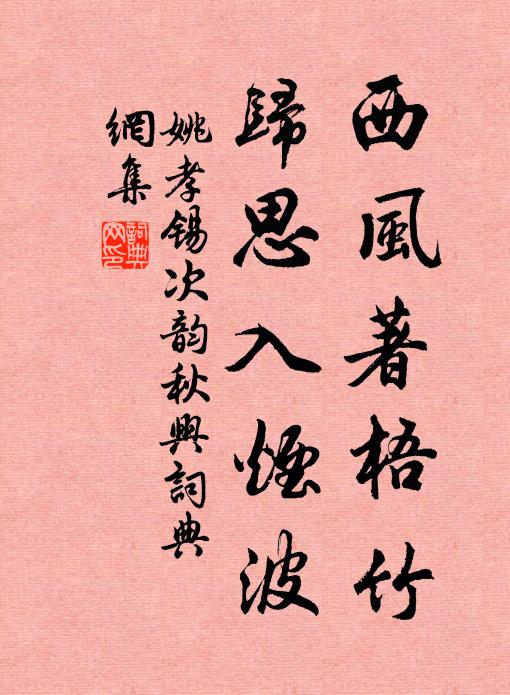 西風著梧竹
歸思入煙波
姚孝锡次韵秋興詞典
網集
詞典
网印